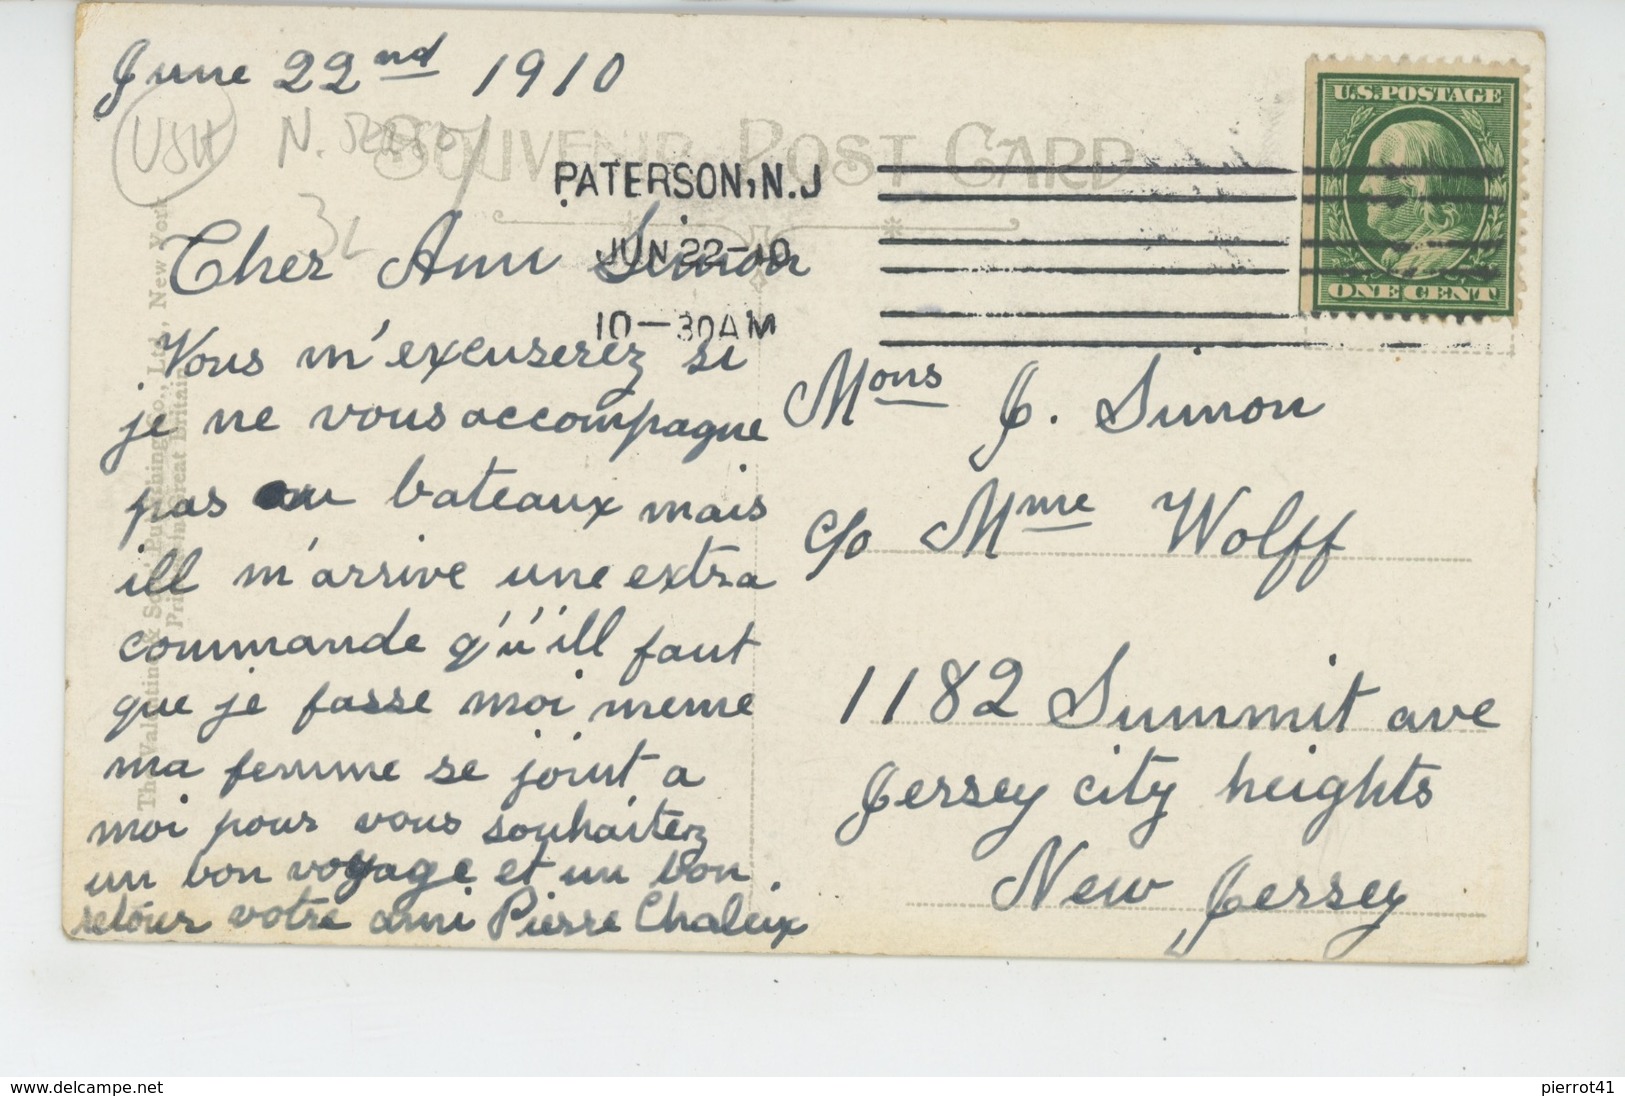 June 22nd 1910
USA
SOUVENIR POST CARD
PATERSON, N.J
JUN 22-10
10-30AM
U.S. POSTAGE
ONE CENT
Cher Ami Simon
Vous m'excuserez si
je ne vous accompagne
pas au bateaux mais
ill m'arrive une extra
commande q'u'ill faut
que je fasse moi meme
ma femme se joint a
moi pour vous souhaitez
un bon voyage et un bon
retour votre ami Pierre Chaleix
Mons J. Simon
c/o Mme Wolff
1182 Summit ave
Jersey city heights
New Jersey
The Valentine & Sons Publishing Co., Ltd., New York
Printed in Great Britain
www.delcampe.net
pierrot41